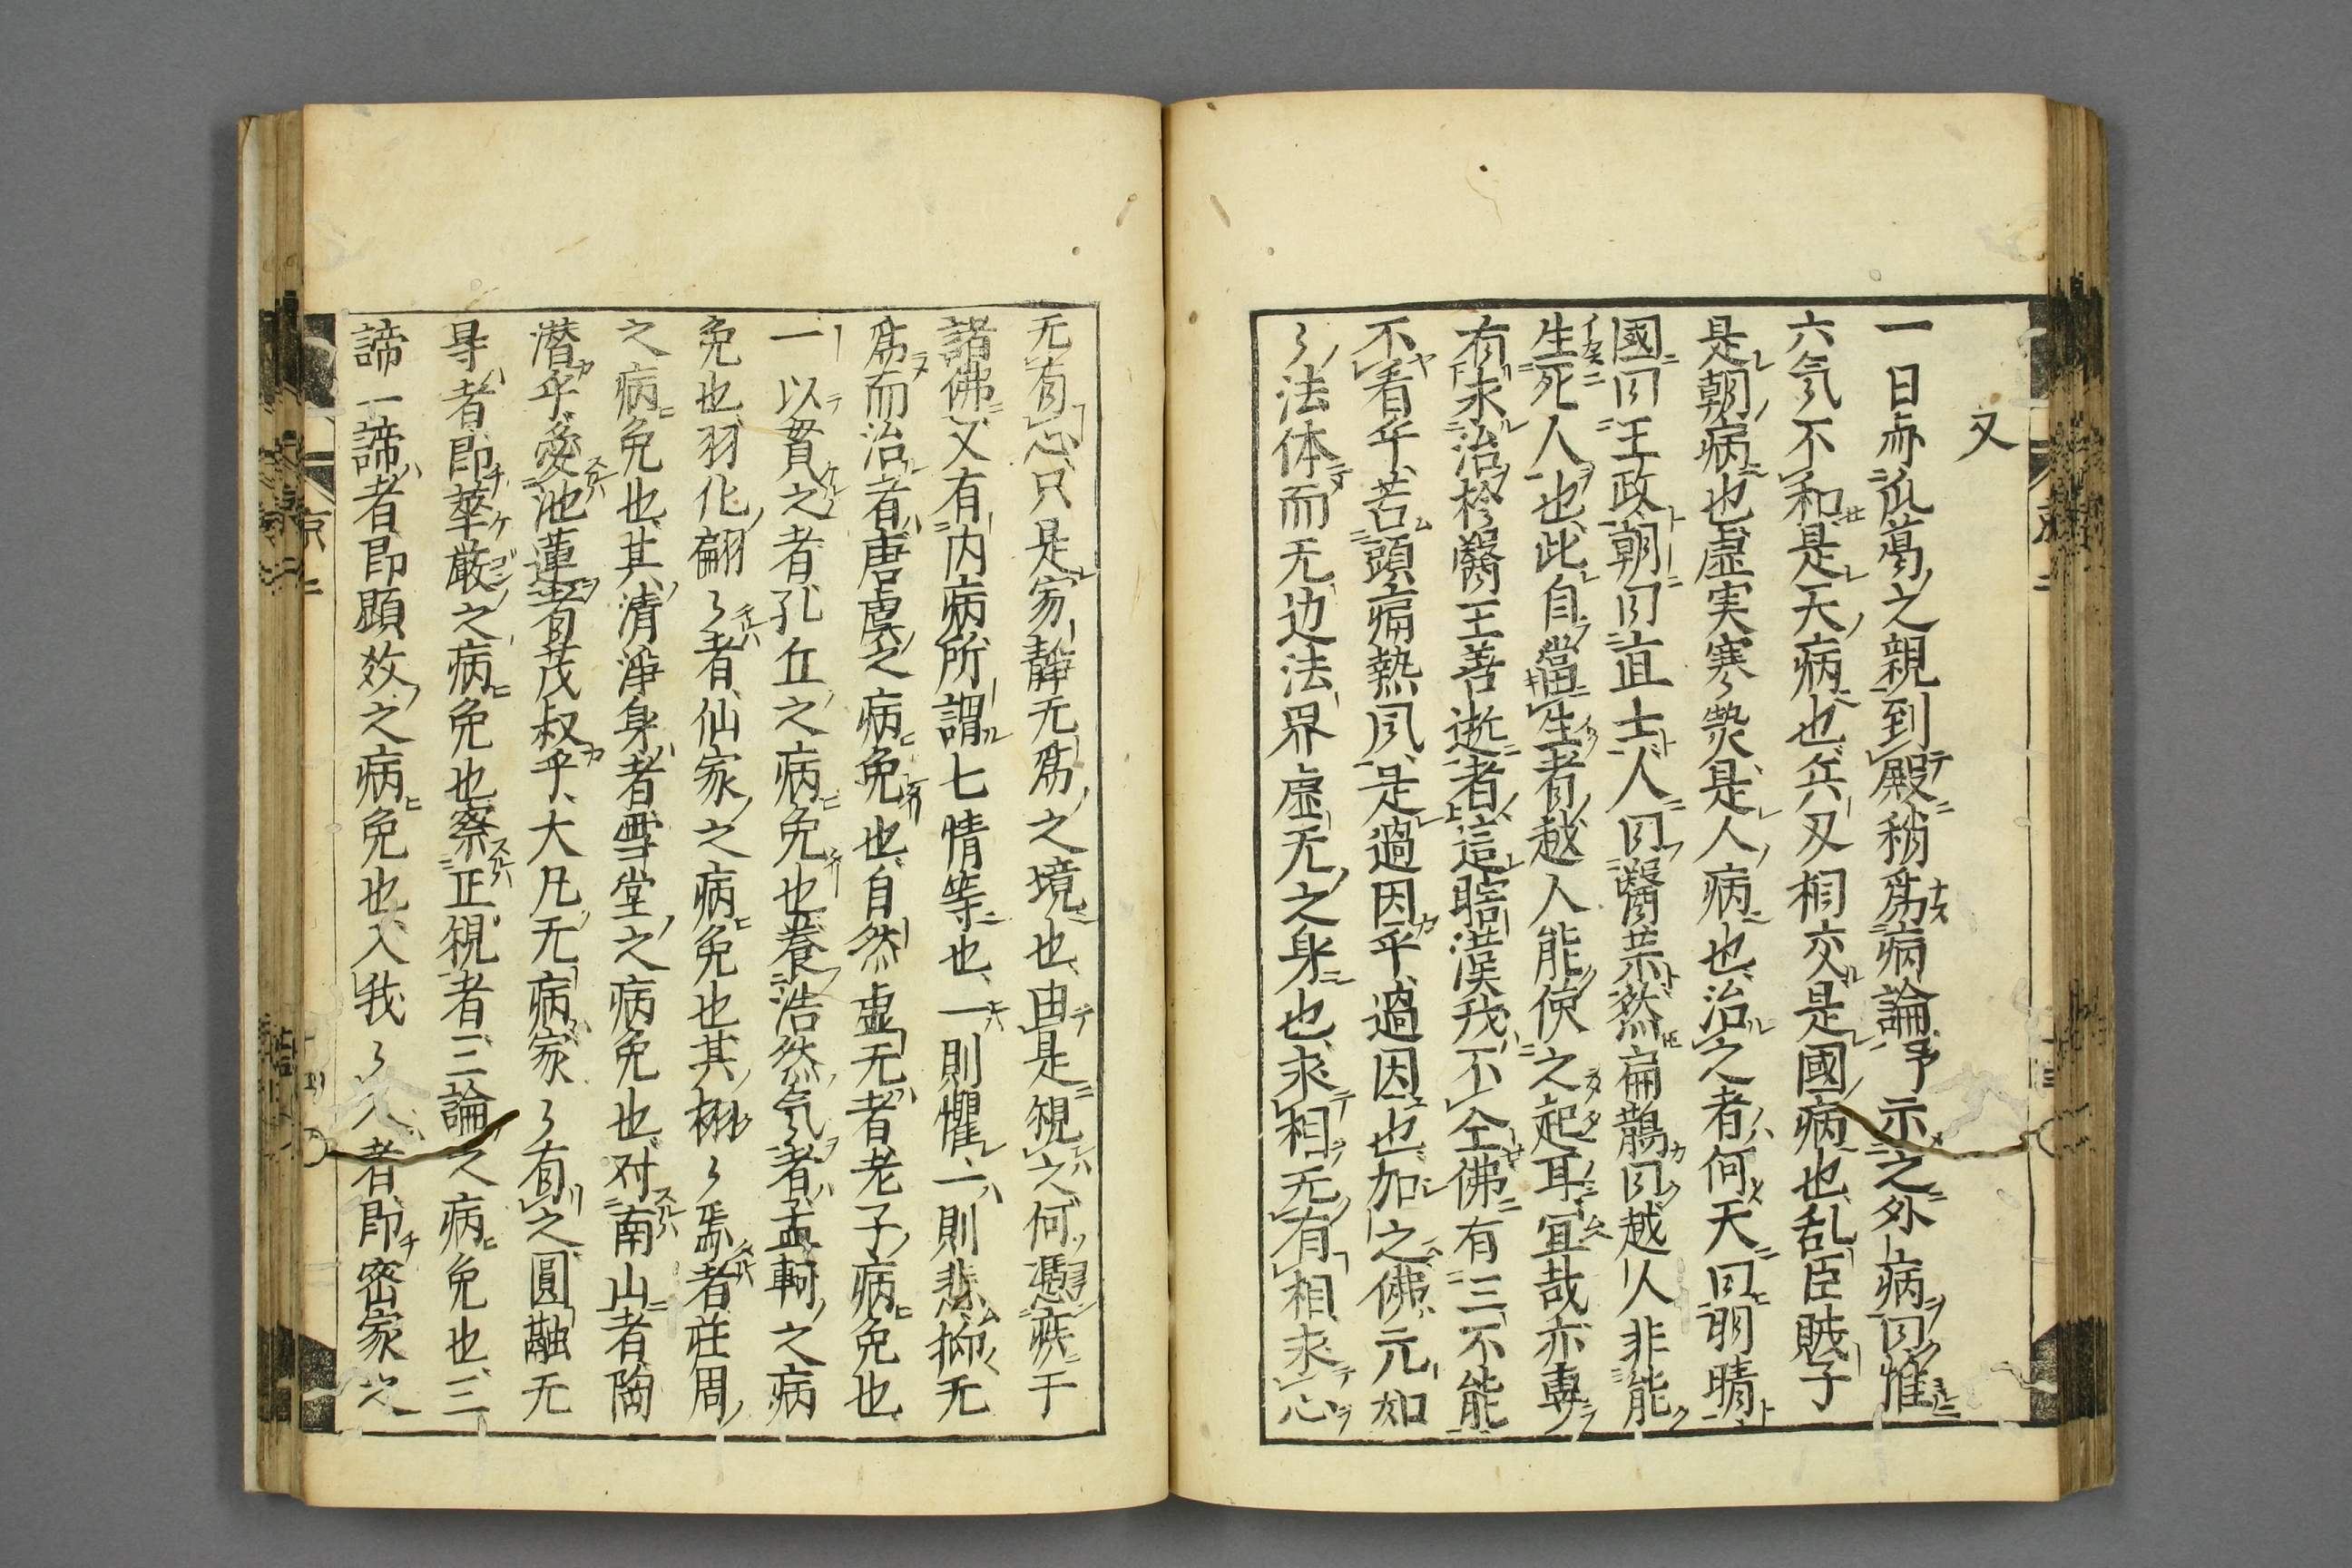 又
一日而瓜葛之親到殿稍爲病論予示之外病曰惟
六気不和是天病也兵又相交是國病也乱臣賊子
是朝病也虚実寒〻熱是人病也治之者何天曰明晴
國曰王政朝曰直士人曰醫業然扁鵲曰越人非能
生死人也此自當生者越人能使之起耳宜哉亦專
有求治於醫王善逝者這瞎漢我不仝佛有三不能
不看乎苦頭痛熱风是過因乎過因也加之佛元如
〻法体而无边法界虚无之身也求相无有相求心
无有心只是家静无爲之境也由是覩之何憑疾于
諸佛又有内病所謂七情等也一則懼一則悲抑无
爲而治者唐虞之病免也自然虚无者老子病免也
一以貫之者孔丘之病免也養浩然気者孟軻之病
免也羽化翩〻者仙家之病免也其栩〻焉者荘周
之病免也其清浄身者雪堂之病免也对南山者陶
潜乎愛池蓮者茂叔乎大凡无病家〻有之圓融无
㝵者即華厳之病免也察正覩者三論之病免也三
諦一諦者即顕效之病免也入我〻入者即密家之